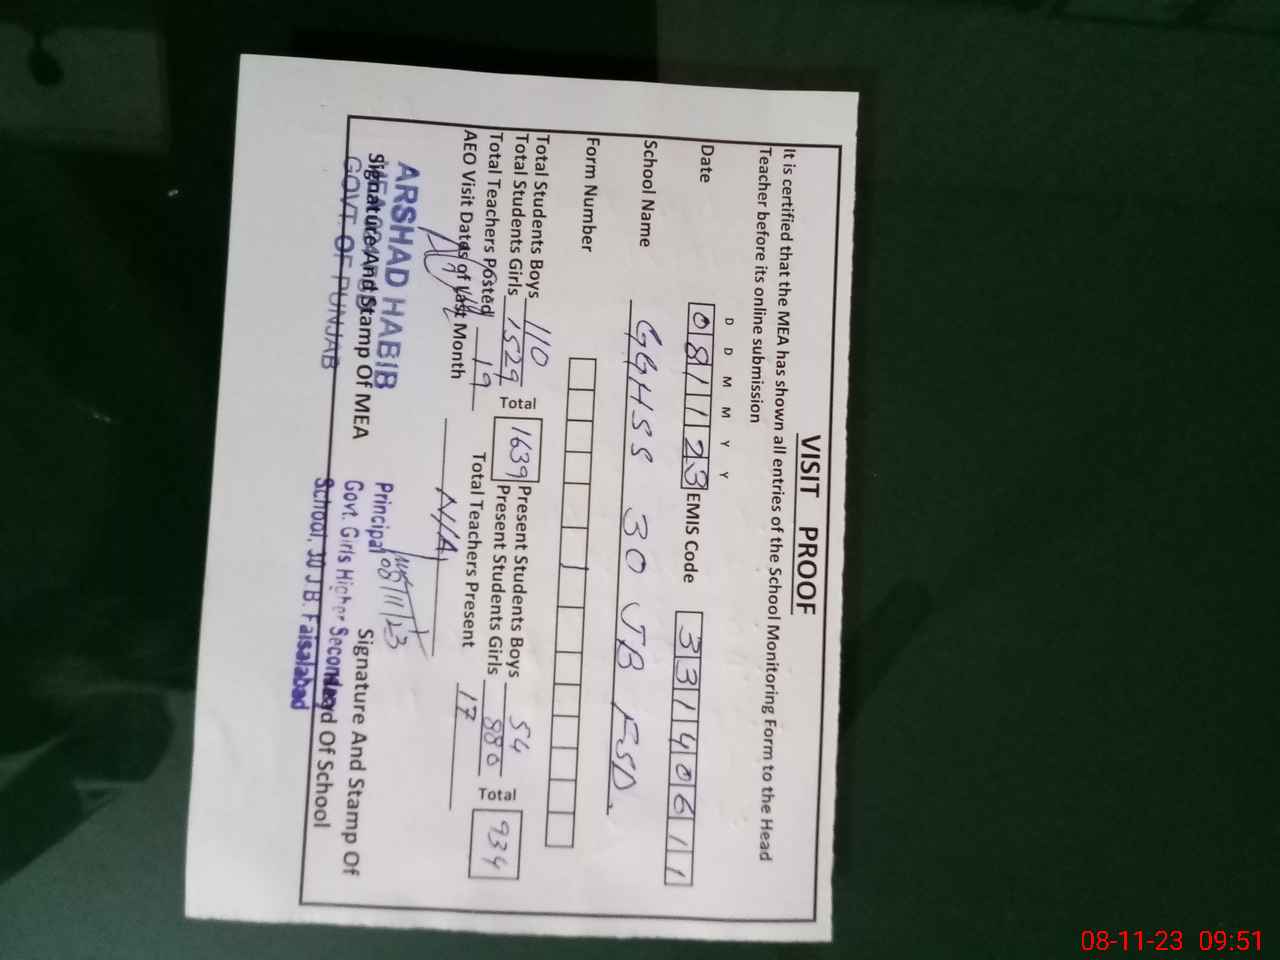 VISIT PROOF
It is certified that the MEA has shown all entries of the School Monitoring Form to the Head
Teacher before its online submission
D D M M Y Y
Date 081123 EMIS Code 33140611
School Name GGHSS 30 JB FSD.
Form Number
Total Students Boys 110 Present Students Boys 54
Total Students Girls 1529 Total 1639 Present Students Girls 880 Total 934
Total Teachers Posted 19 Total Teachers Present 17
AEO Visit Dates of Last Month N/A
ARSHAD HABIB
Signature And Stamp Of MEA
GOVT. OF PUNJAB
08/11/23
Signature And Stamp Of
Head Of School
Principal
Govt. Girls Higher Secondary
School, 30 J.B. Faisalabad
08-11-23 09:51